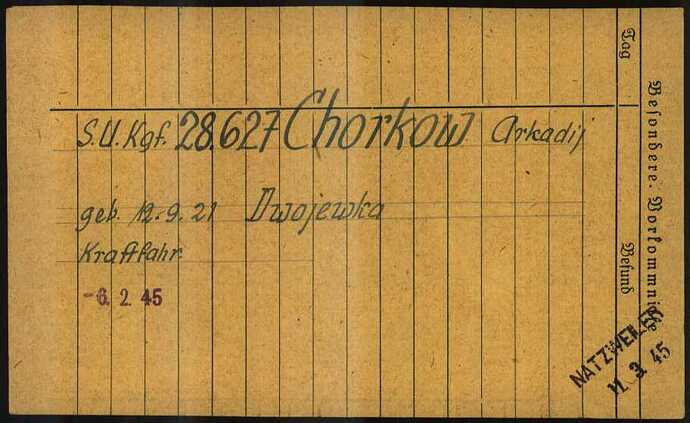 S.U. Kgf. 28.627 Chorkow Arkadij
geb. 12.9.21 Dwojewka
Kraftfahr.
-6. 2. 45
Tag
Befund
Besondere Vorkommnisse
NATZWEILER
11. 3. 45